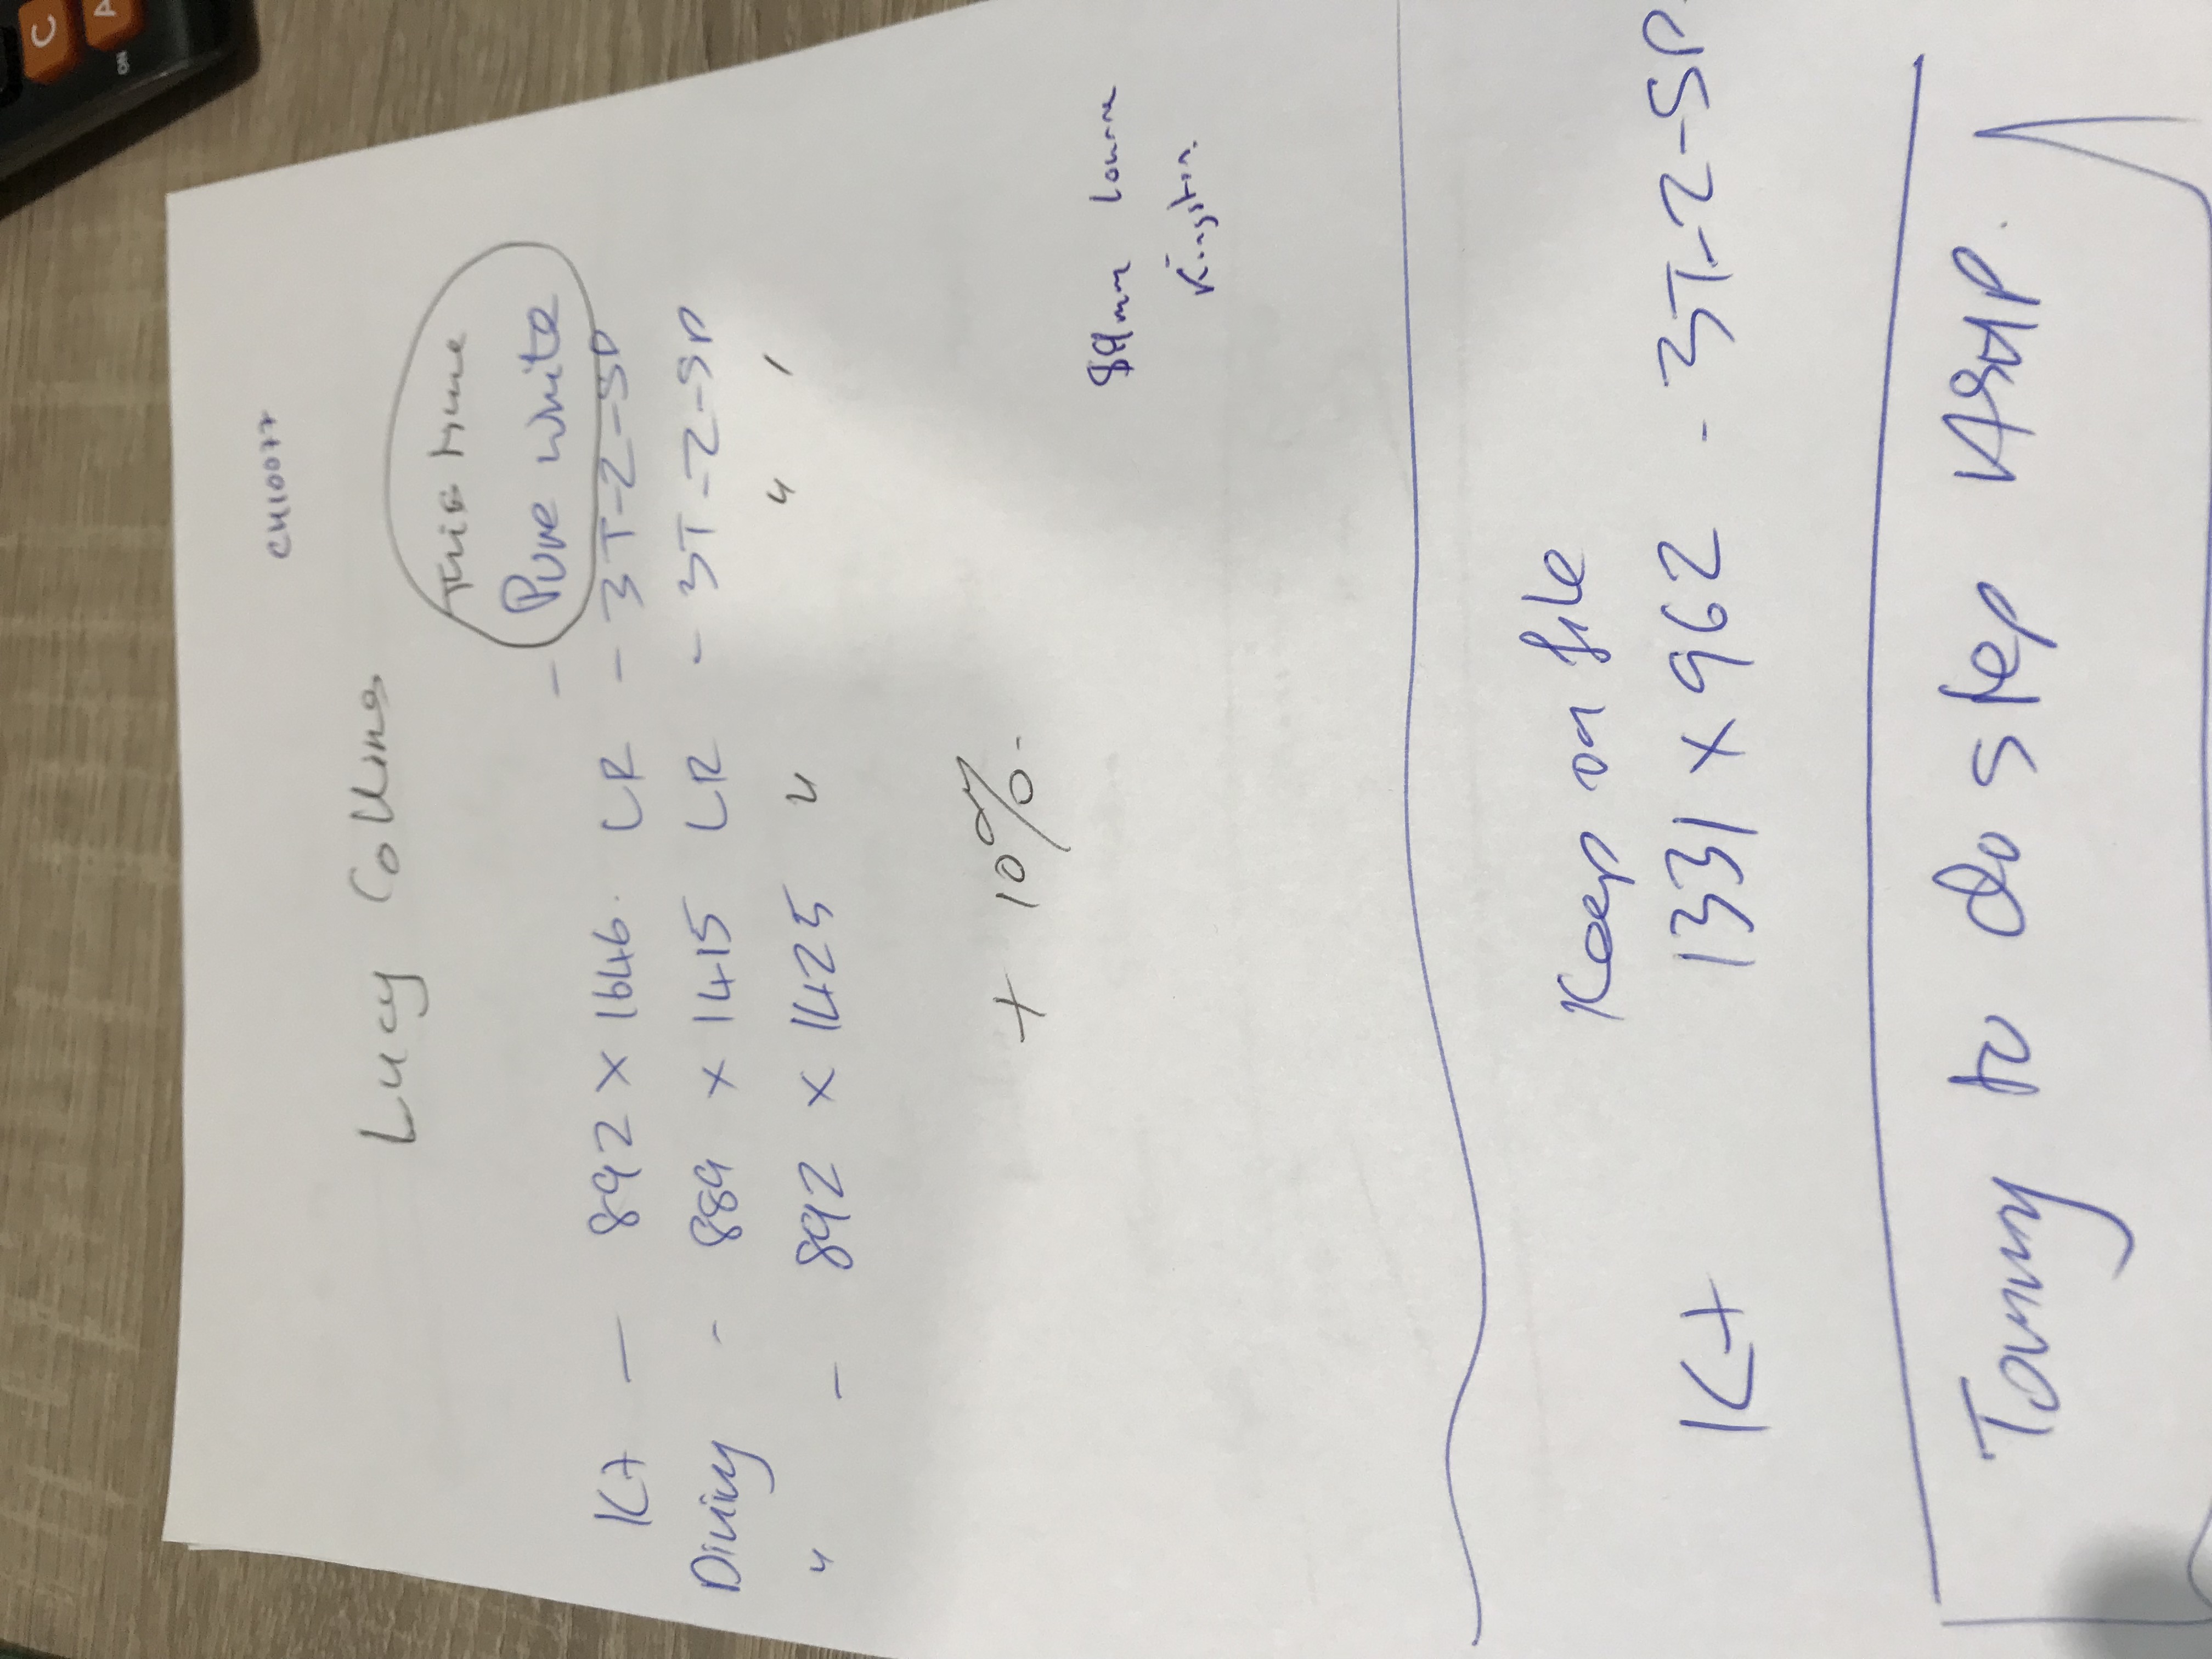 CH10077
Lucy Collins
This time
- Pure white
Kt - 892 x 1646. LR - 3T-2-SP
Dining - 889 x 1415 LR - 3T-2-SP
" - 892 x 1425 " " '
+ 10%.
89mm louvre
Kingston.
Keep on file
Kt 1331 x 962 - 3T-2-SP.
Tommy to do step ASAP.
C
ON